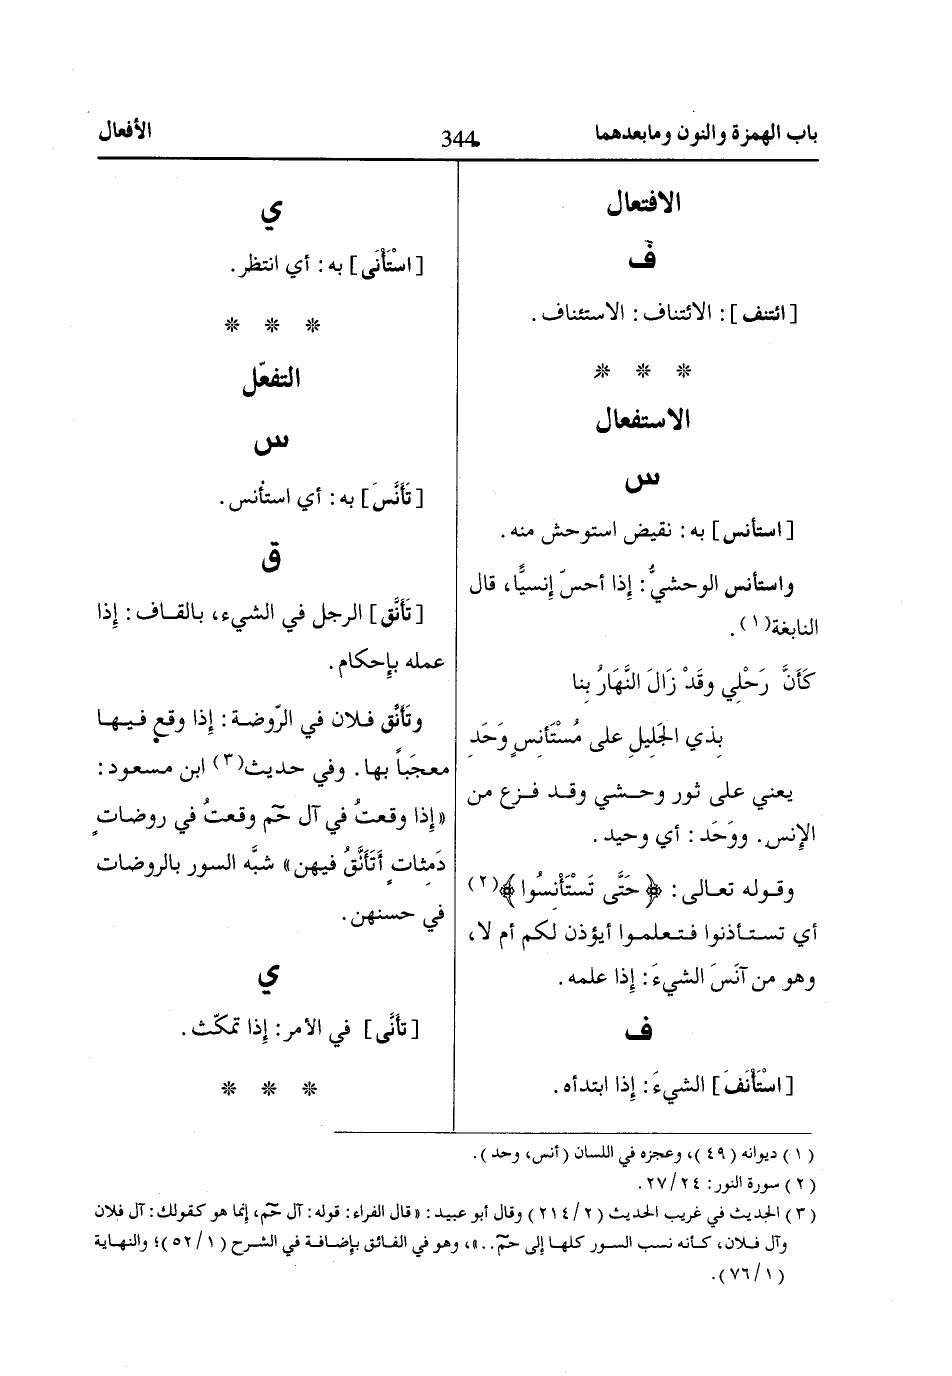 باب الهمزة والنون ومابعدهما
344
الأفعال
الافتعال
ف
[ائتنف]: الائتناف: الاستئناف.
* * *
الاستفعال
س
[استأنس] به: نقيض استوحش منه.
واستأنس الوحشيُّ: إذا أحسّ إنسيًّا، قال
النابغة(١).
كَأَنَّ رَحْلِي وقَدْ زَالَ النَّهَارُ بِنا
بِذي الجَلِيلِ على مُسْتَأنِسٍ وَحَدِ
يعني على ثور وحشي وقد فزع من
الإنس. ووَحَد: أي وحيد.
وقوله تعالى: ﴿حَتَّى تَسْتَأْنِسُوا﴾(٢)
أي تستأذنوا فتعلموا أيؤذن لكم أم لا،
وهو من آنَسَ الشيءَ: إذا علمه.
ف
[اسْتَأْنَفَ] الشيءَ: إذا ابتدأه.
ي
[اسْتَأْنَى] به: أي انتظر.
* * *
التفعّل
س
[تَأَنَّسَ] به: أي استأنس.
ق
[تَأَنَّق] الرجل في الشيء، بالقاف: إذا
عمله بإحكام.
وتَأَنَّق فلان في الرّوضة: إذا وقع فيها
معجَباً بها. وفي حديث(٣) ابن مسعود:
«إذا وقعتُ في آل حمٓ وقعتُ في روضاتٍ
دَمِثاتٍ أَتَأَنَّقُ فيهن» شبَّه السور بالروضات
في حسنهن.
ي
[تأنَّى] في الأمر: إذا تمكّث.
* * *
(١) ديوانه (٤٩)، وعجزه في اللسان (أنس، وحد).
(٢) سورة النور: ٢٤/ ٢٧.
(٣) الحديث في غريب الحديث (٢/ ٢١٤) وقال أبو عبيد: «قال الفراء: قوله: آل حمٓ، إنما هو كقولك: آل فلان
وآل فلان، كأنه نسب السور كلها إلى حمٓ..»، وهو في الفائق بإضافة في الشرح (١/ ٥٢)؛ والنهاية
(١/ ٧٦).